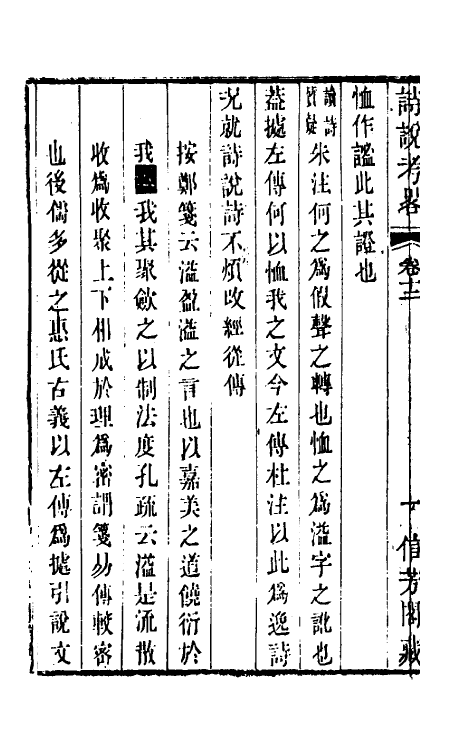 詩說考畧 卷十二 信芳閣藏
恤作謐此其證也
讀詩質疑朱注何之爲假聲之轉也恤之爲溢字之訛也
葢據左傳何以恤我之文今左傳杜注以此爲逸詩
况就詩說詩不煩改經從傳
按鄭箋云溢盈溢之言也以嘉美之道饒衍於
我我其聚斂之以制法度孔疏云溢是流散
收爲收聚上下相成於理爲密謂箋易傳較密
也後儒多從之惠氏古義以左傳爲據引說文